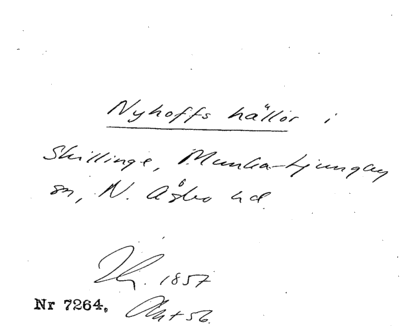 Nyhoffs hällor i
Skillinge, Munka-Ljungby
sn, N. Åsbo hd.
1857
Nr 7264. Okt 56.